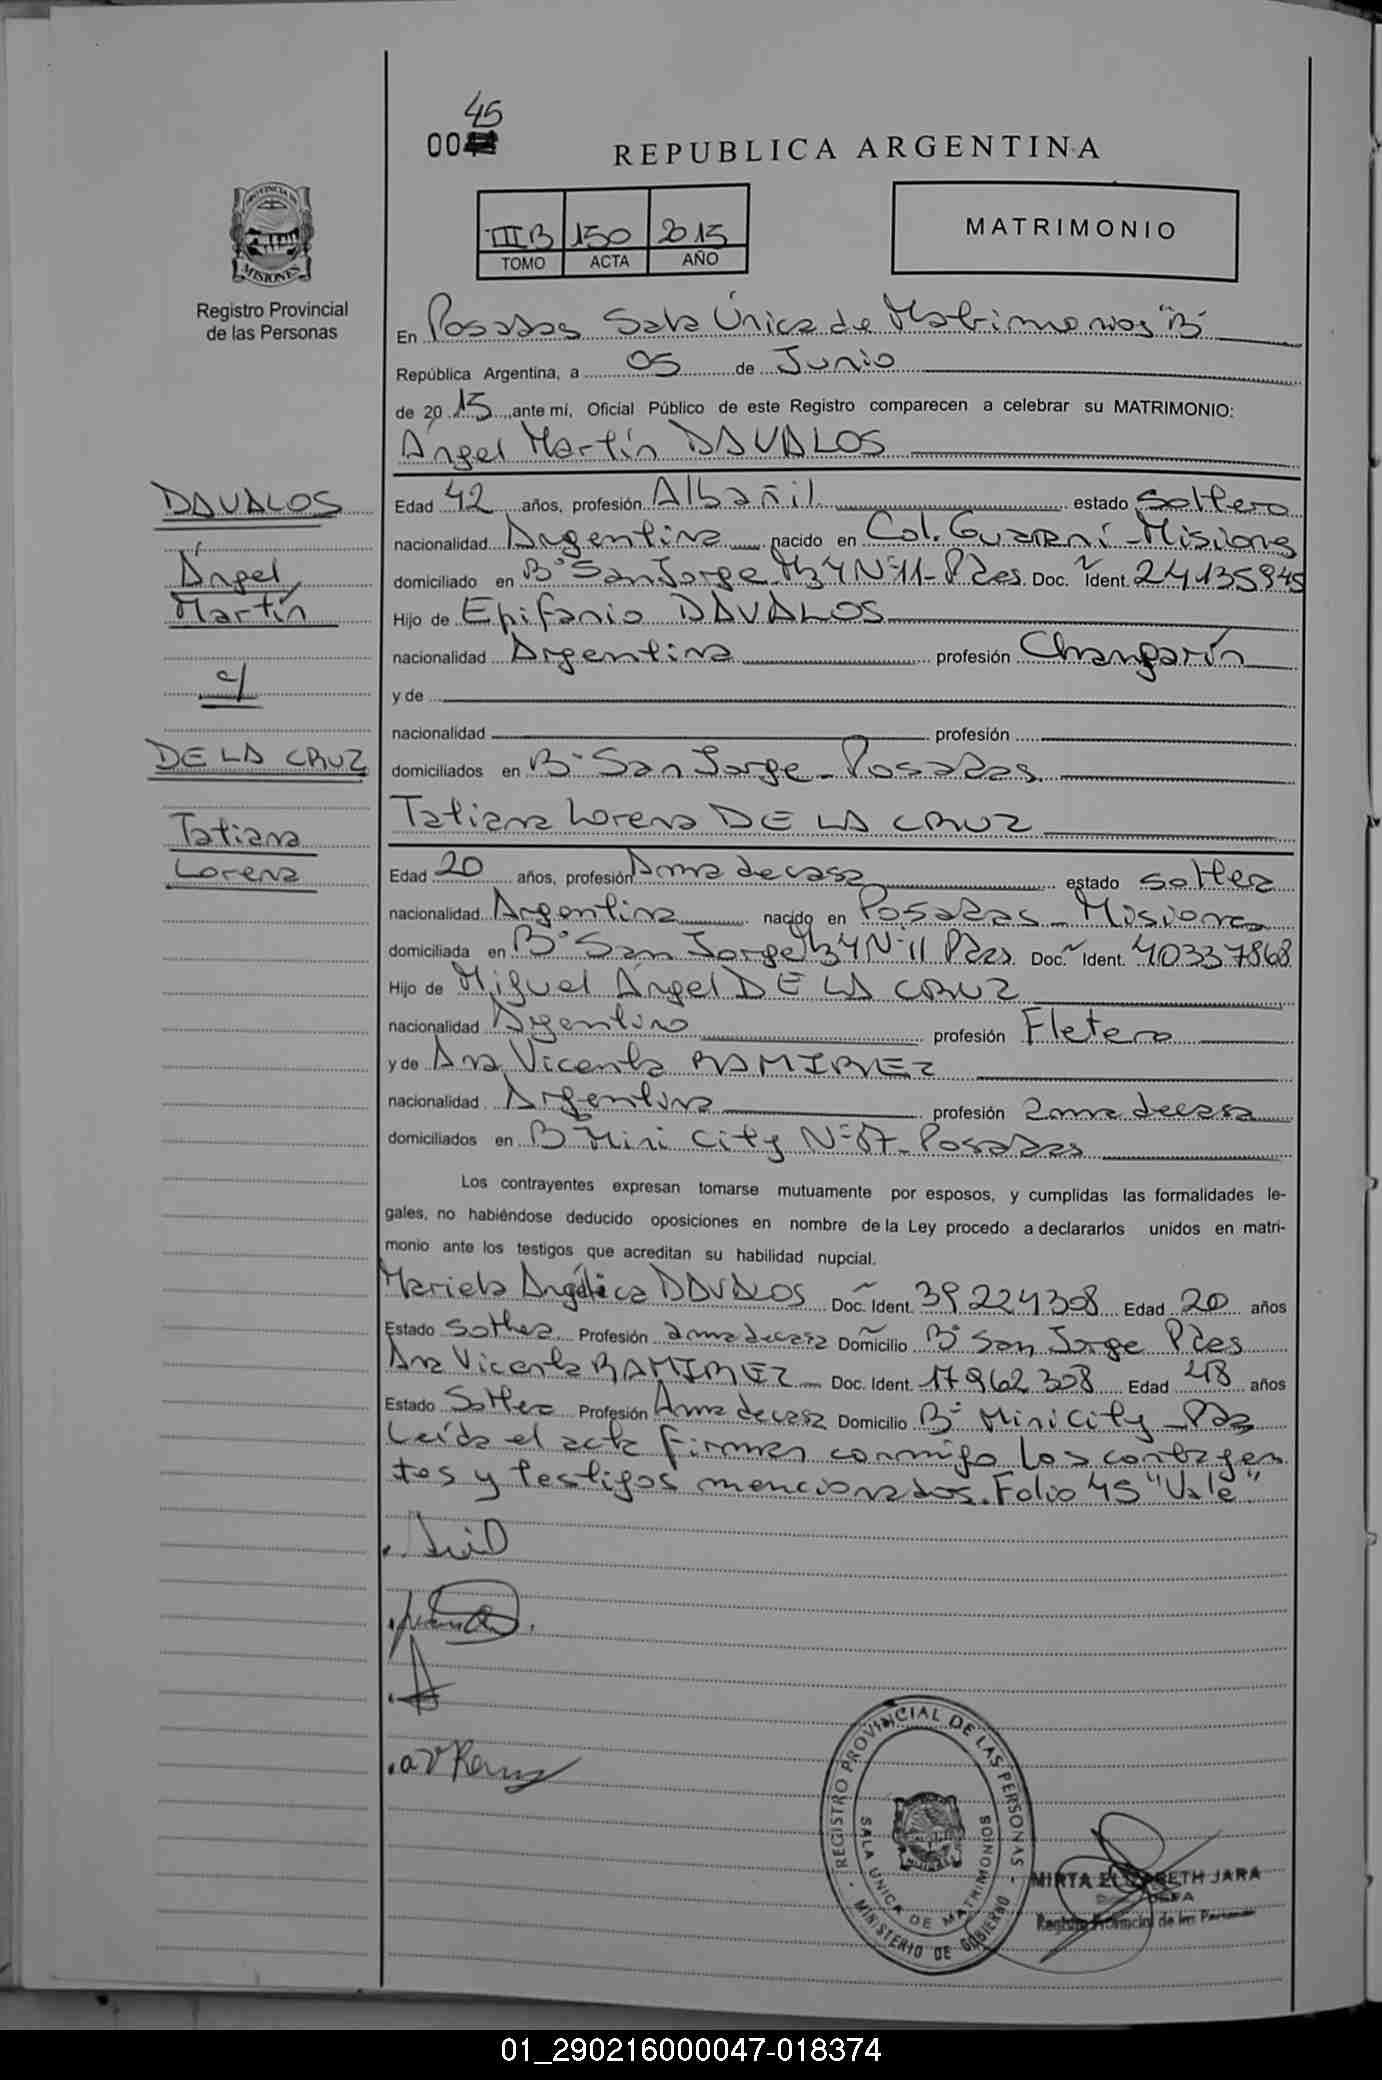 45
00
REPUBLICA ARGENTINA
III B 150 2015
TOMO ACTA AÑO
MATRIMONIO
PROVINCIA DE
MISIONES
Registro Provincial
de las Personas
En Posadas Sala Única de Matrimonios "B"
República Argentina, a 05 de Junio
de 20 15, ante mí, Oficial Público de este Registro comparecen a celebrar su MATRIMONIO:
Ángel Martín DAVALOS
DAVALOS
Ángel
Martín
c/
DE LA CRUZ
Tatiana
Lorena
Edad 42 años, profesión Albañil estado soltero
nacionalidad Argentina nacido en Col. Guaraní - Misiones
domiciliado en B° San Jorge Mz 4 N° 11 - Pdas. Doc. Ident. 24135945
Hijo de Epifanio DAVALOS
nacionalidad Argentina profesión Changarín
y de
nacionalidad profesión
domiciliados en B° San Jorge - Posadas
Tatiana Lorena DE LA CRUZ
Edad 20 años, profesión Ama de casa estado soltera
nacionalidad Argentina nacido en Posadas - Misiones
domiciliada en B° San Jorge Mz 4 N° 11 Pdas. Doc. Ident. 40337868
Hijo de Miguel Ángel DE LA CRUZ
nacionalidad Argentino profesión Fletero
y de Ana Vicenta RAMIREZ
nacionalidad Argentina profesión ama de casa
domiciliados en B° Mini City N° - Posadas
Los contrayentes expresan tomarse mutuamente por esposos, y cumplidas las formalidades le-
gales, no habiéndose deducido oposiciones en nombre de la Ley procedo a declararlos unidos en matri-
monio ante los testigos que acreditan su habilidad nupcial.
Mariela Angélica DAVALOS Doc. Ident. 39.224.308 Edad 20 años
Estado Soltera Profesión ama de casa Domicilio B° San Jorge Pdas
Ana Vicenta RAMIREZ Doc. Ident. 17.962.308 Edad 48 años
Estado Soltera Profesión Ama de casa Domicilio B° Mini City - Pdas
Leída el acta firman conmigo los contrayen
tes y testigos mencionados. Folio 45 "Vale"
REGISTRO PROVINCIAL DE LAS PERSONAS
SALA UNICA DE MATRIMONIOS
MINISTERIO DE GOBIERNO
MIRTA ELIZABETH JARA
Registro Provincial de las Personas
01_290216000047-018374